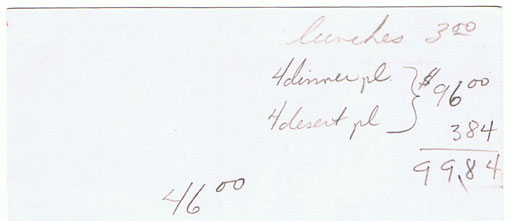 lunches 3 00
4 dinner pl. } $96 00
4 desert pl
384
99.84
46 00